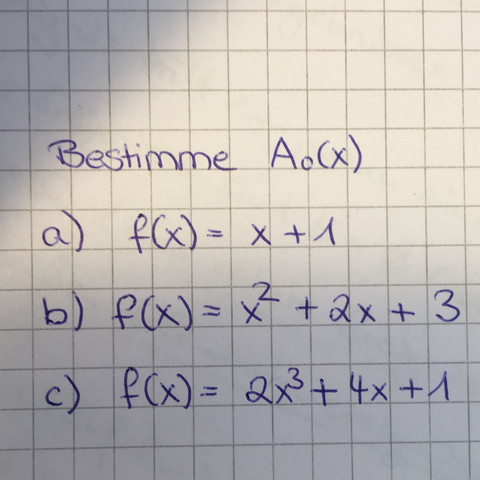 Bestimme A₀(x)
a) f(x) = x + 1
b) f(x) = x² + 2x + 3
c) f(x) = 2x³ + 4x + 1